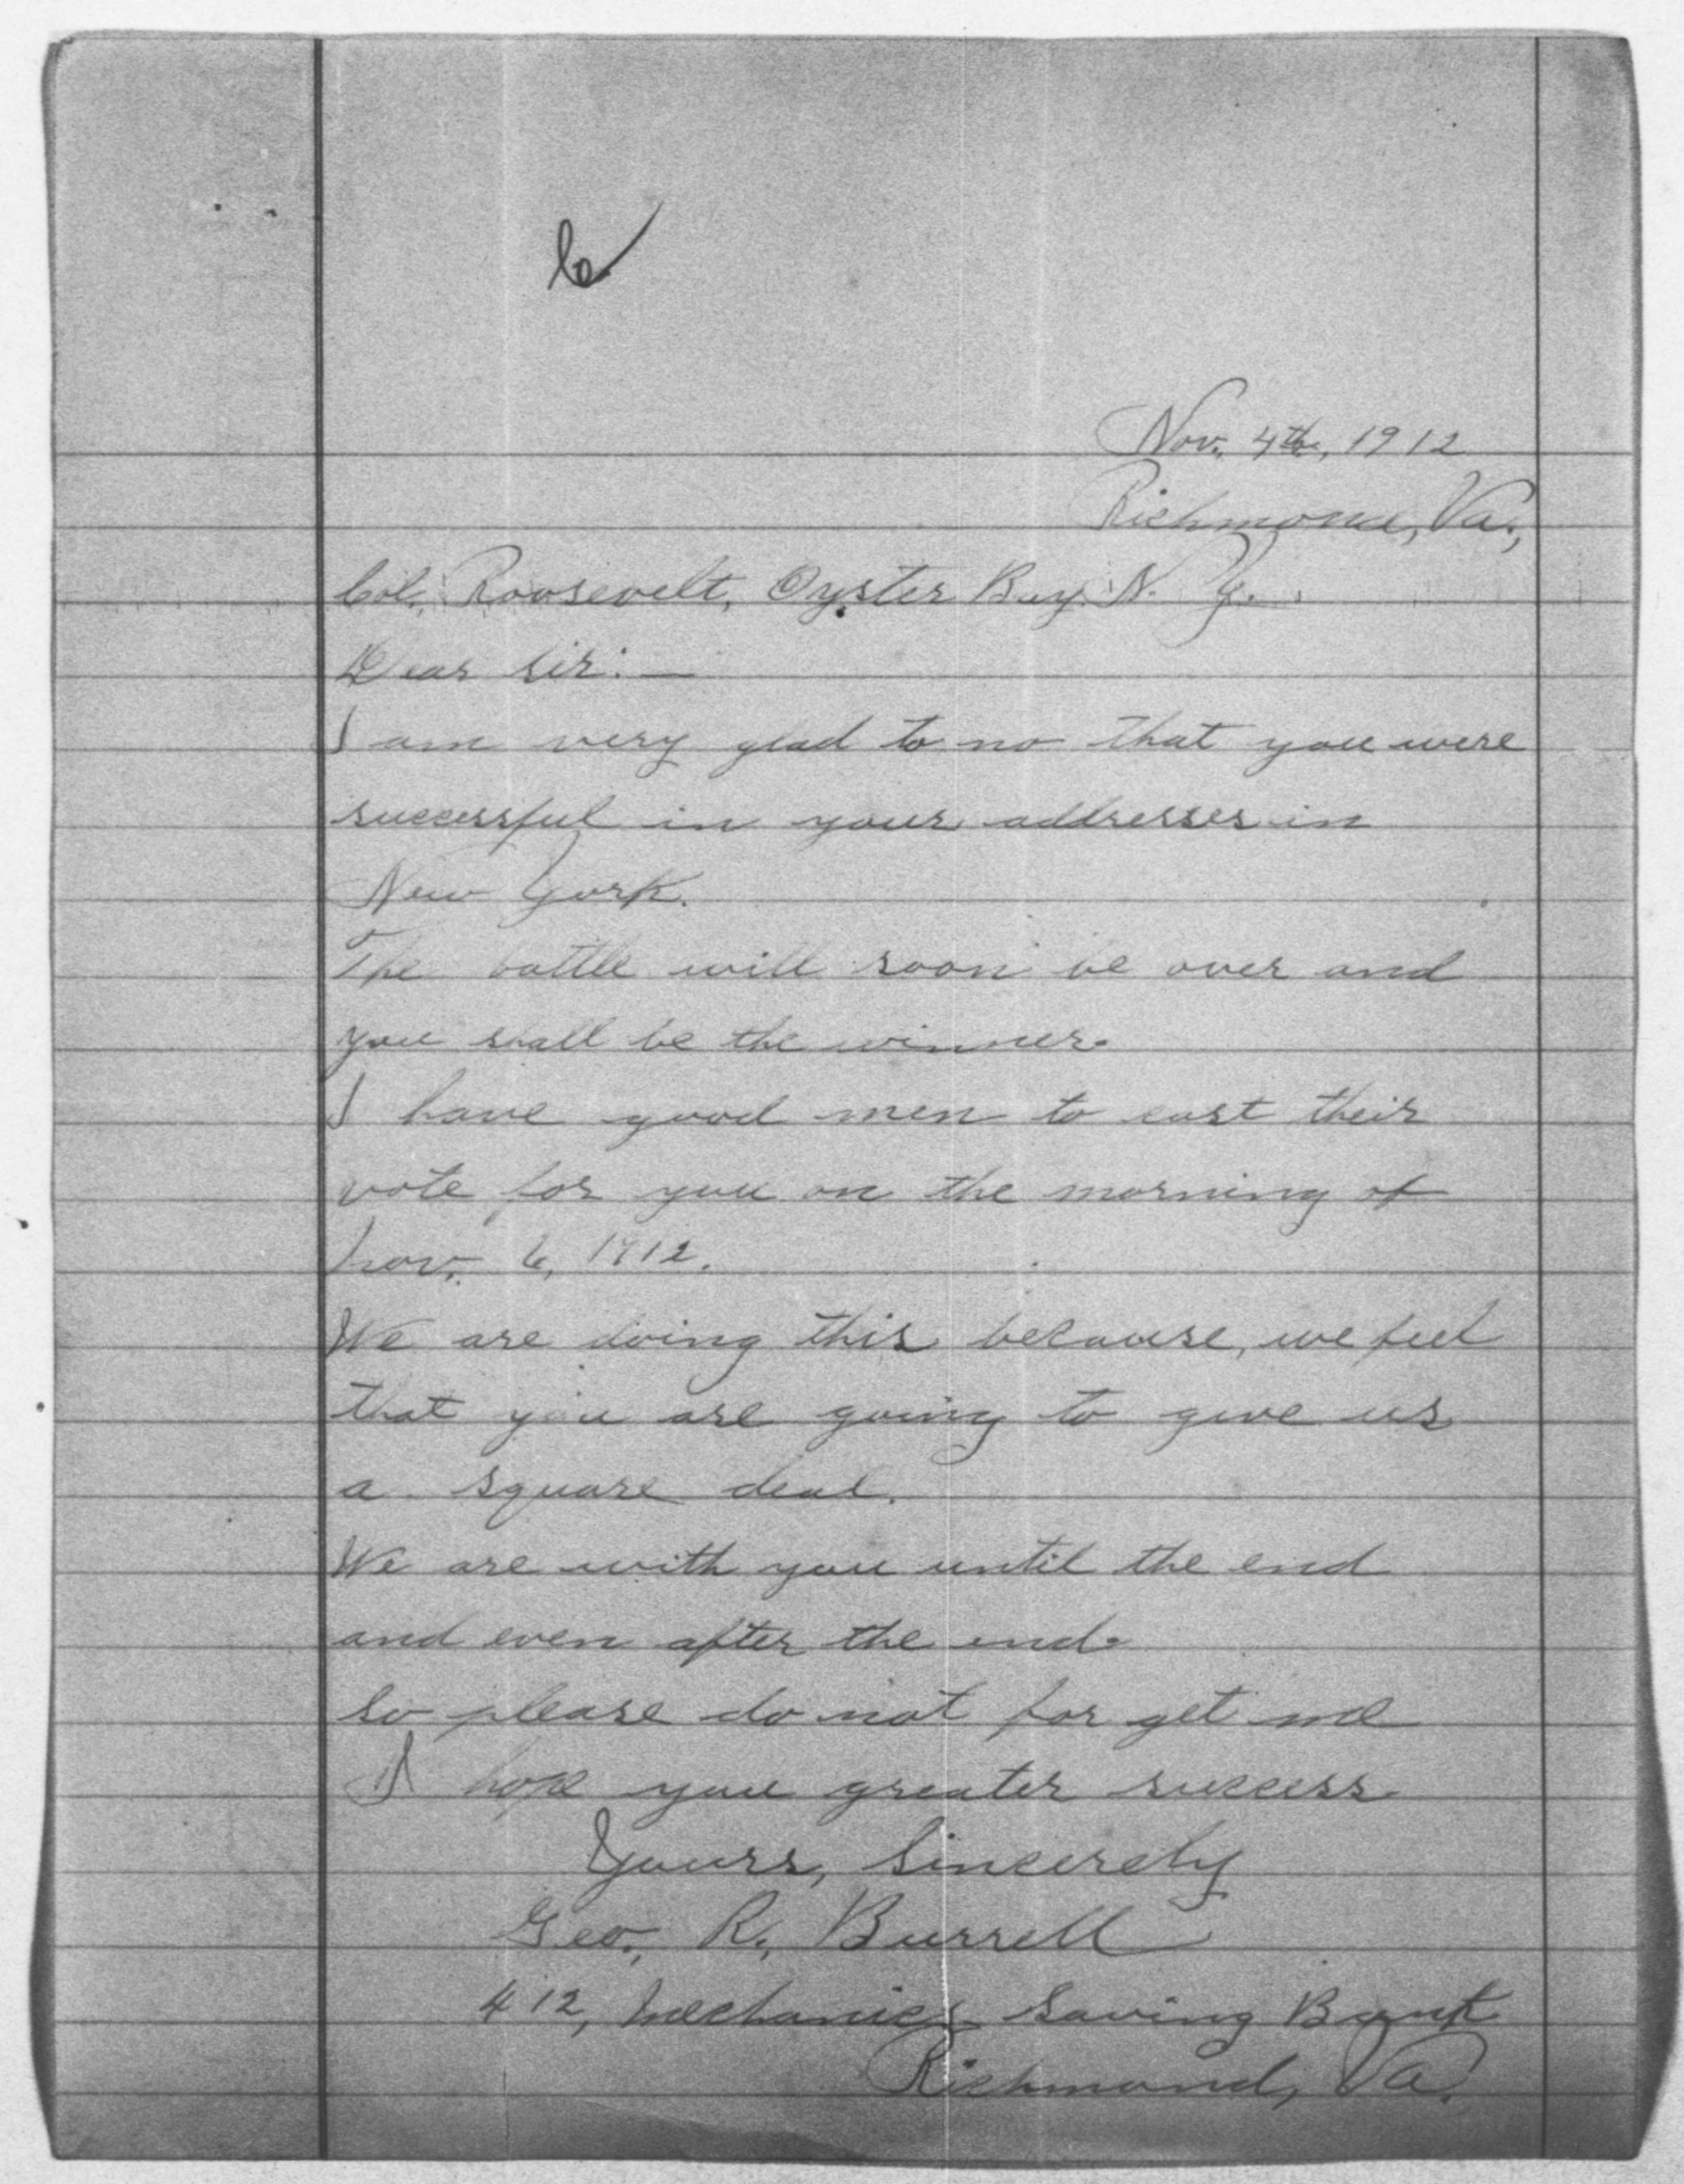 Nov. 4th, 1912
Richmond, Va.,
Col. Roosevelt, Oyster Bay N. Y.
Dear Sir:—
I am very glad to no that you were
successful in your addresses in
New York.
The battle will soon be over and
you shall be the winner.
I have good men to cast their
vote for you on the morning of
Nov. 6, 1912.
We are doing this because, we feel
that you are going to give us
a square deal.
We are with you until the end
and even after the end.
So please do not for get me
I hope you greater success
Yours, Sincerely
Geo. R. Burrell
412, Mechanics Saving Bank
Richmond, Va.